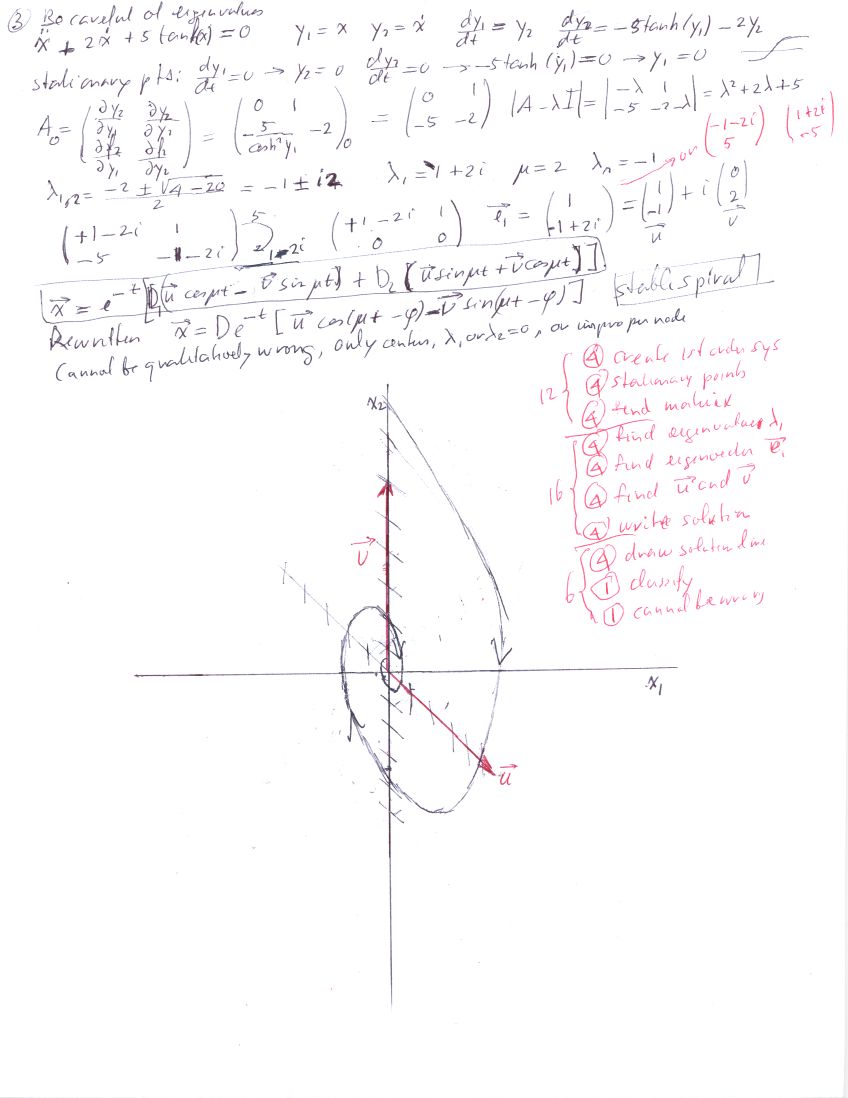 ③ Be careful of eigenvalues
ẍ + 2ẋ + 5 tanh(x) = 0 y₁ = x y₂ = ẋ dy₁/dt = y₂ dy₂/dt = -5tanh(y₁) - 2y₂
stationary pts: dy₁/dt = 0 → y₂ = 0 dy₂/dt = 0 → -5tanh(y₁) = 0 → y₁ = 0
A₀ = (0 1; -5/cosh²y₁ -2)₀ = (0 1; -5 -2) |A - λI| = |-λ 1; -5 -2-λ| = λ² + 2λ + 5
or (-1-2i; 5) (1+2i; -5)
λ₁,₂ = (-2 ± √(4-20))/2 = -1 ± i2 λ₁ = -1 + 2i μ = 2 λᵣ = -1
(+1-2i 1; -5 -1-2i) (+1-2i 1; 0 0) e₁ = (1; -1+2i) = (1; -1) + i (0; 2)
u v
x = e^-t [D₁[u cosμt - v sinμt] + D₂ [u sinμt + v cosμt]]
Rewritten x = De^-t [u cos(μt - φ) - v sin(μt - φ)] stable spiral
Cannot be qualitatively wrong, only center, λ₁ or λ₂ = 0, or improper node
12 { ④ create 1st order sys
④ stationary points
④ find matrix
16 { ④ find eigenvalues λ₁
④ find eigenvector e₁
④ find u and v
④ write solution
6 { ④ draw solution line
① classify
① cannot be wrong
x₂
v
x₁
u